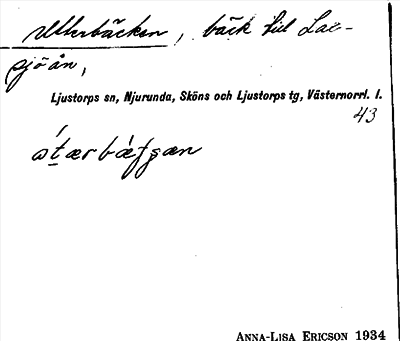 Utterbäcken, bäck till Lax-
sjöån,
Ljustorps sn, Njurunda, Sköns och Ljustorps tg, Västernorrl. l.
43
ANNA-LISA ERICSON 1934